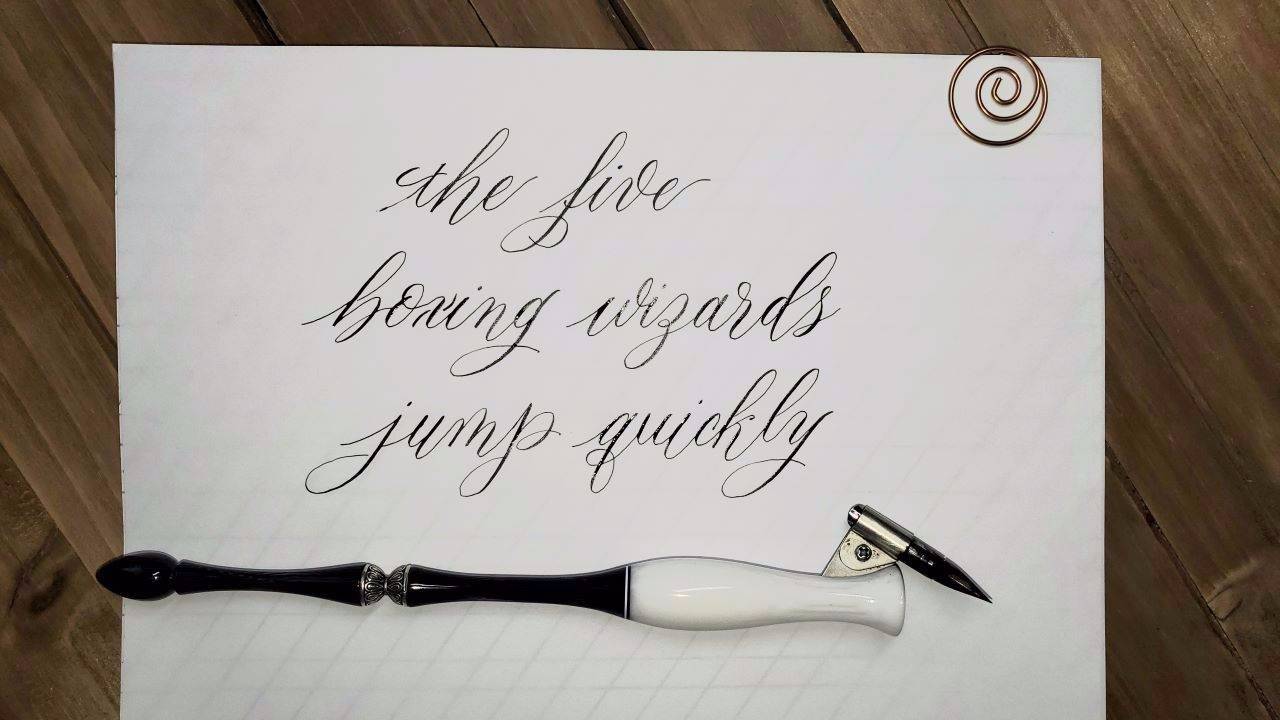 the five
boxing wizards
jump quickly